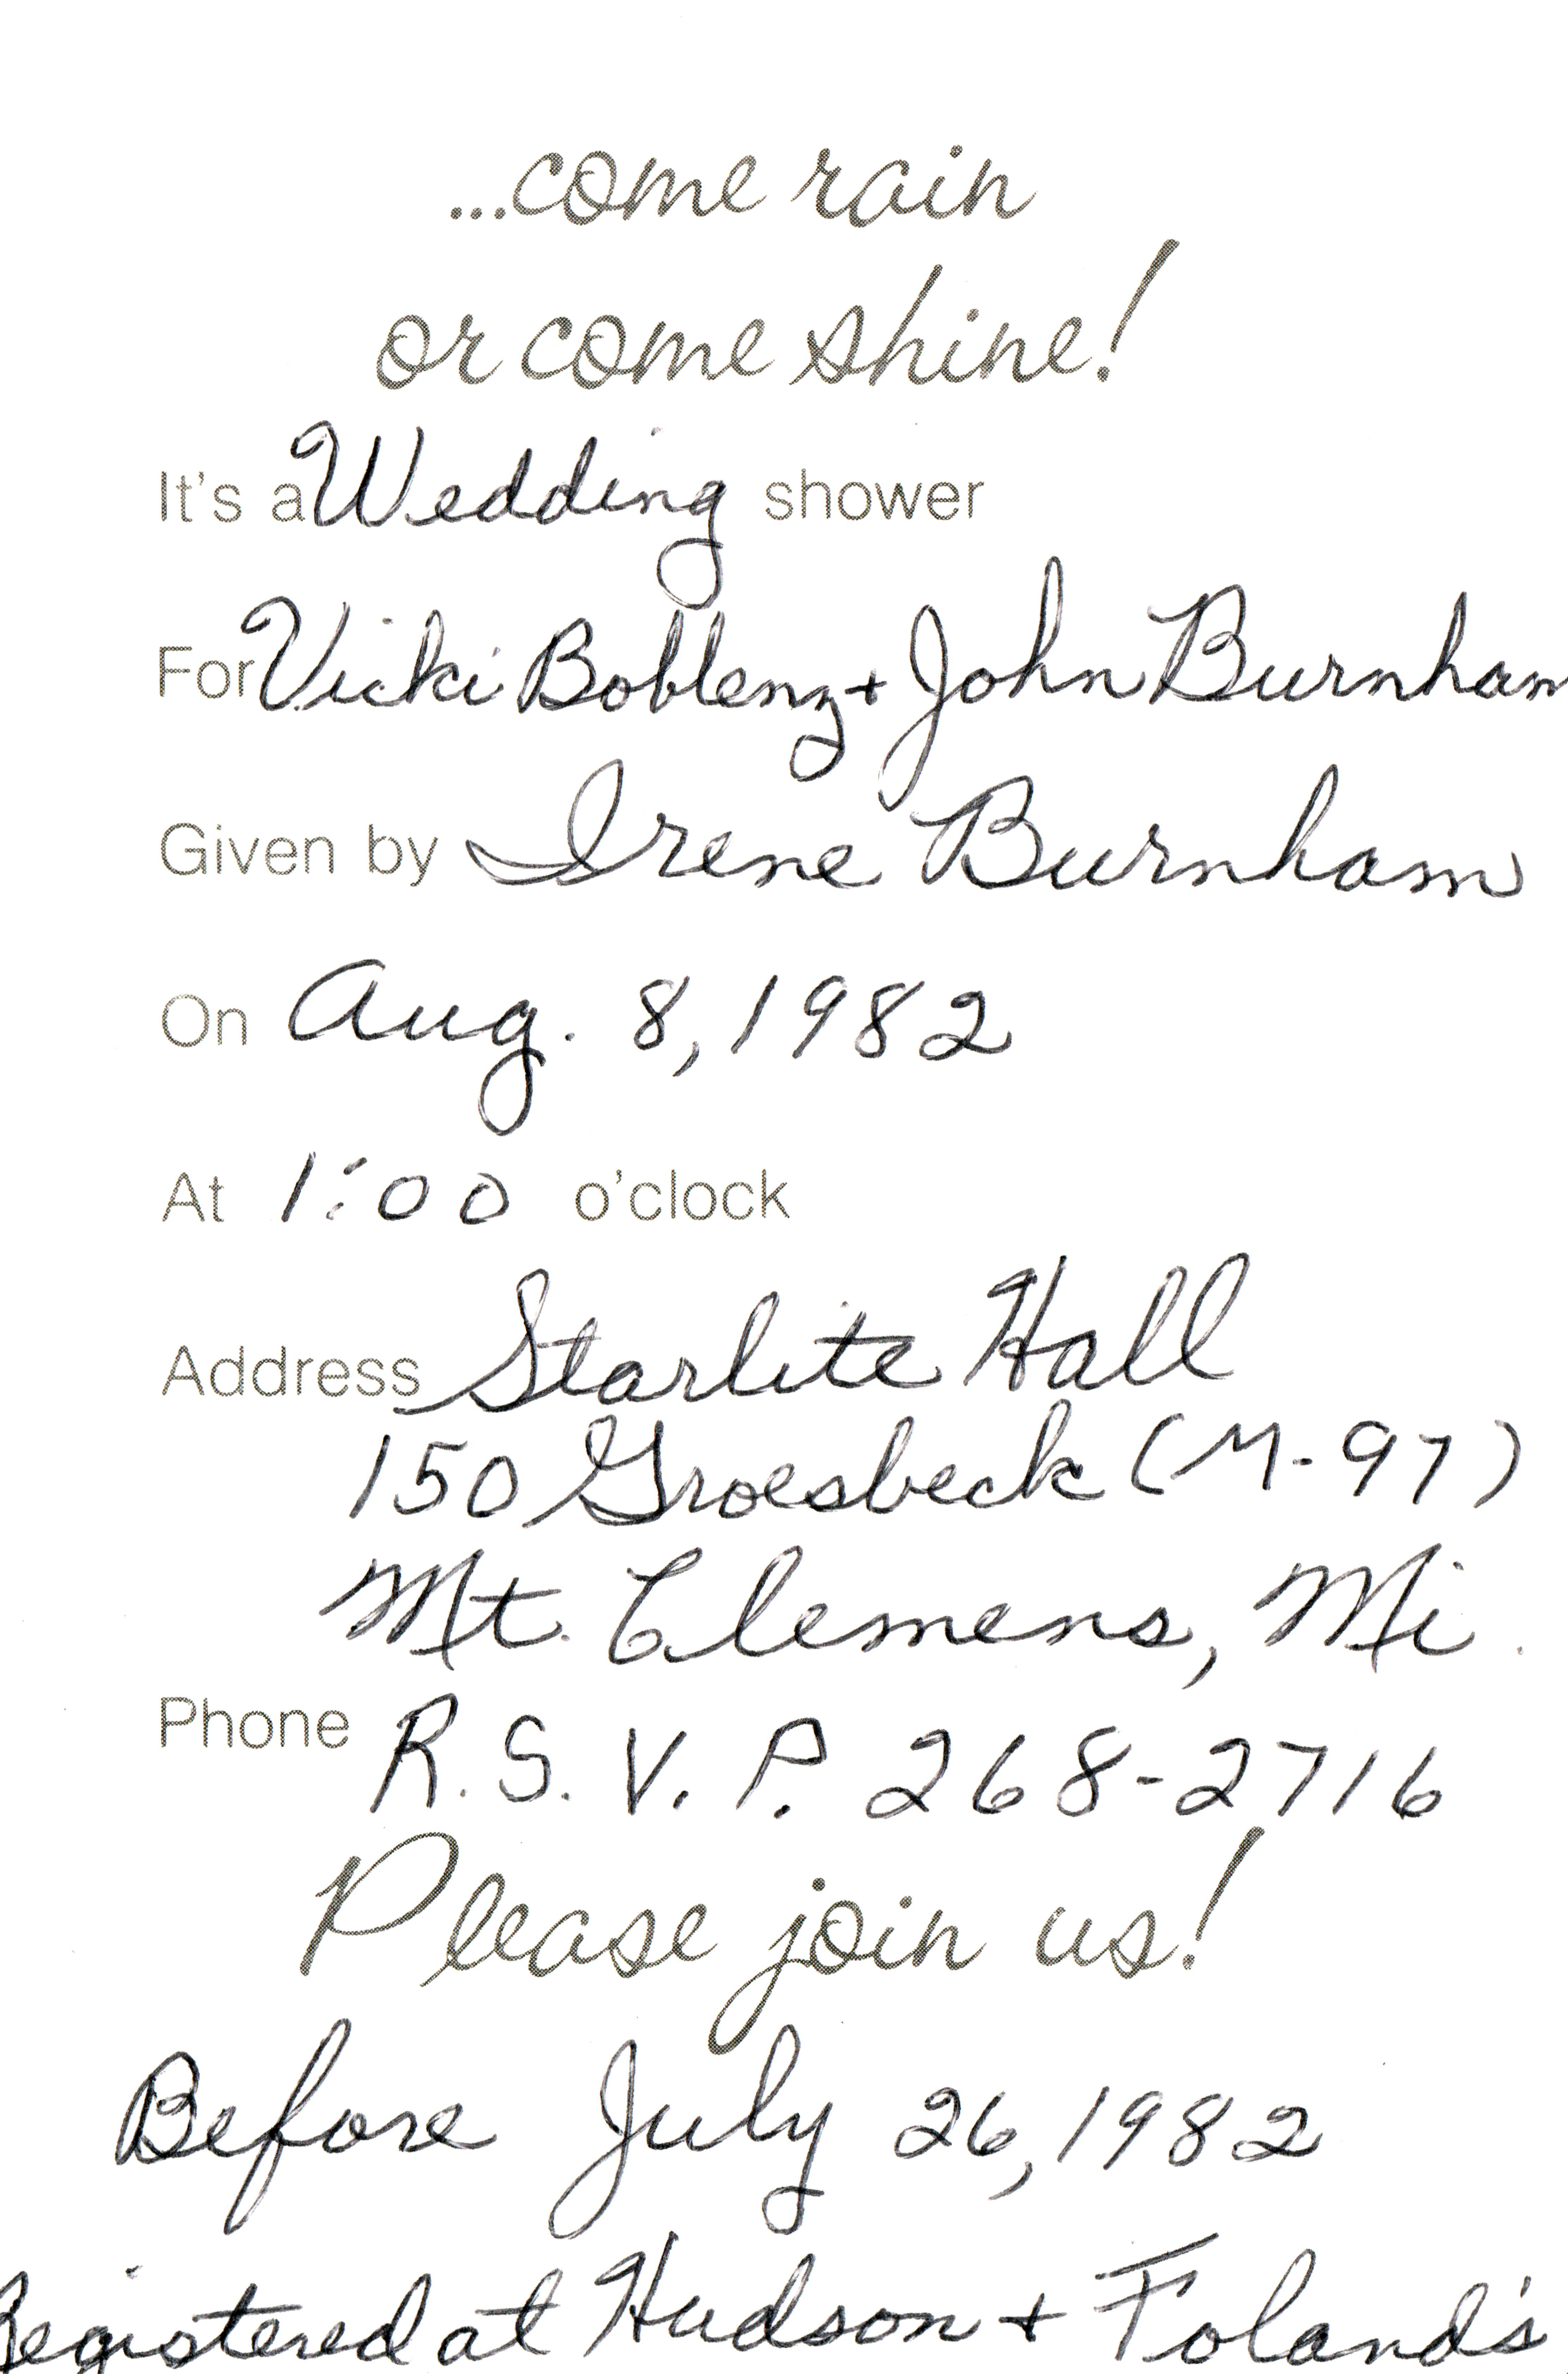 ...come rain
or come shine!
It's a Wedding shower
For Vicki Boblenz + John Burnham
Given by Irene Burnham
On Aug. 8, 1982
At 1:00 o'clock
Address Starlite Hall
150 Groesbeck (M-97)
Mt. Clemens, Mi.
Phone R.S.V.P. 268-2716
Please join us!
Before July 26, 1982
Registered at Hudson + Foland's